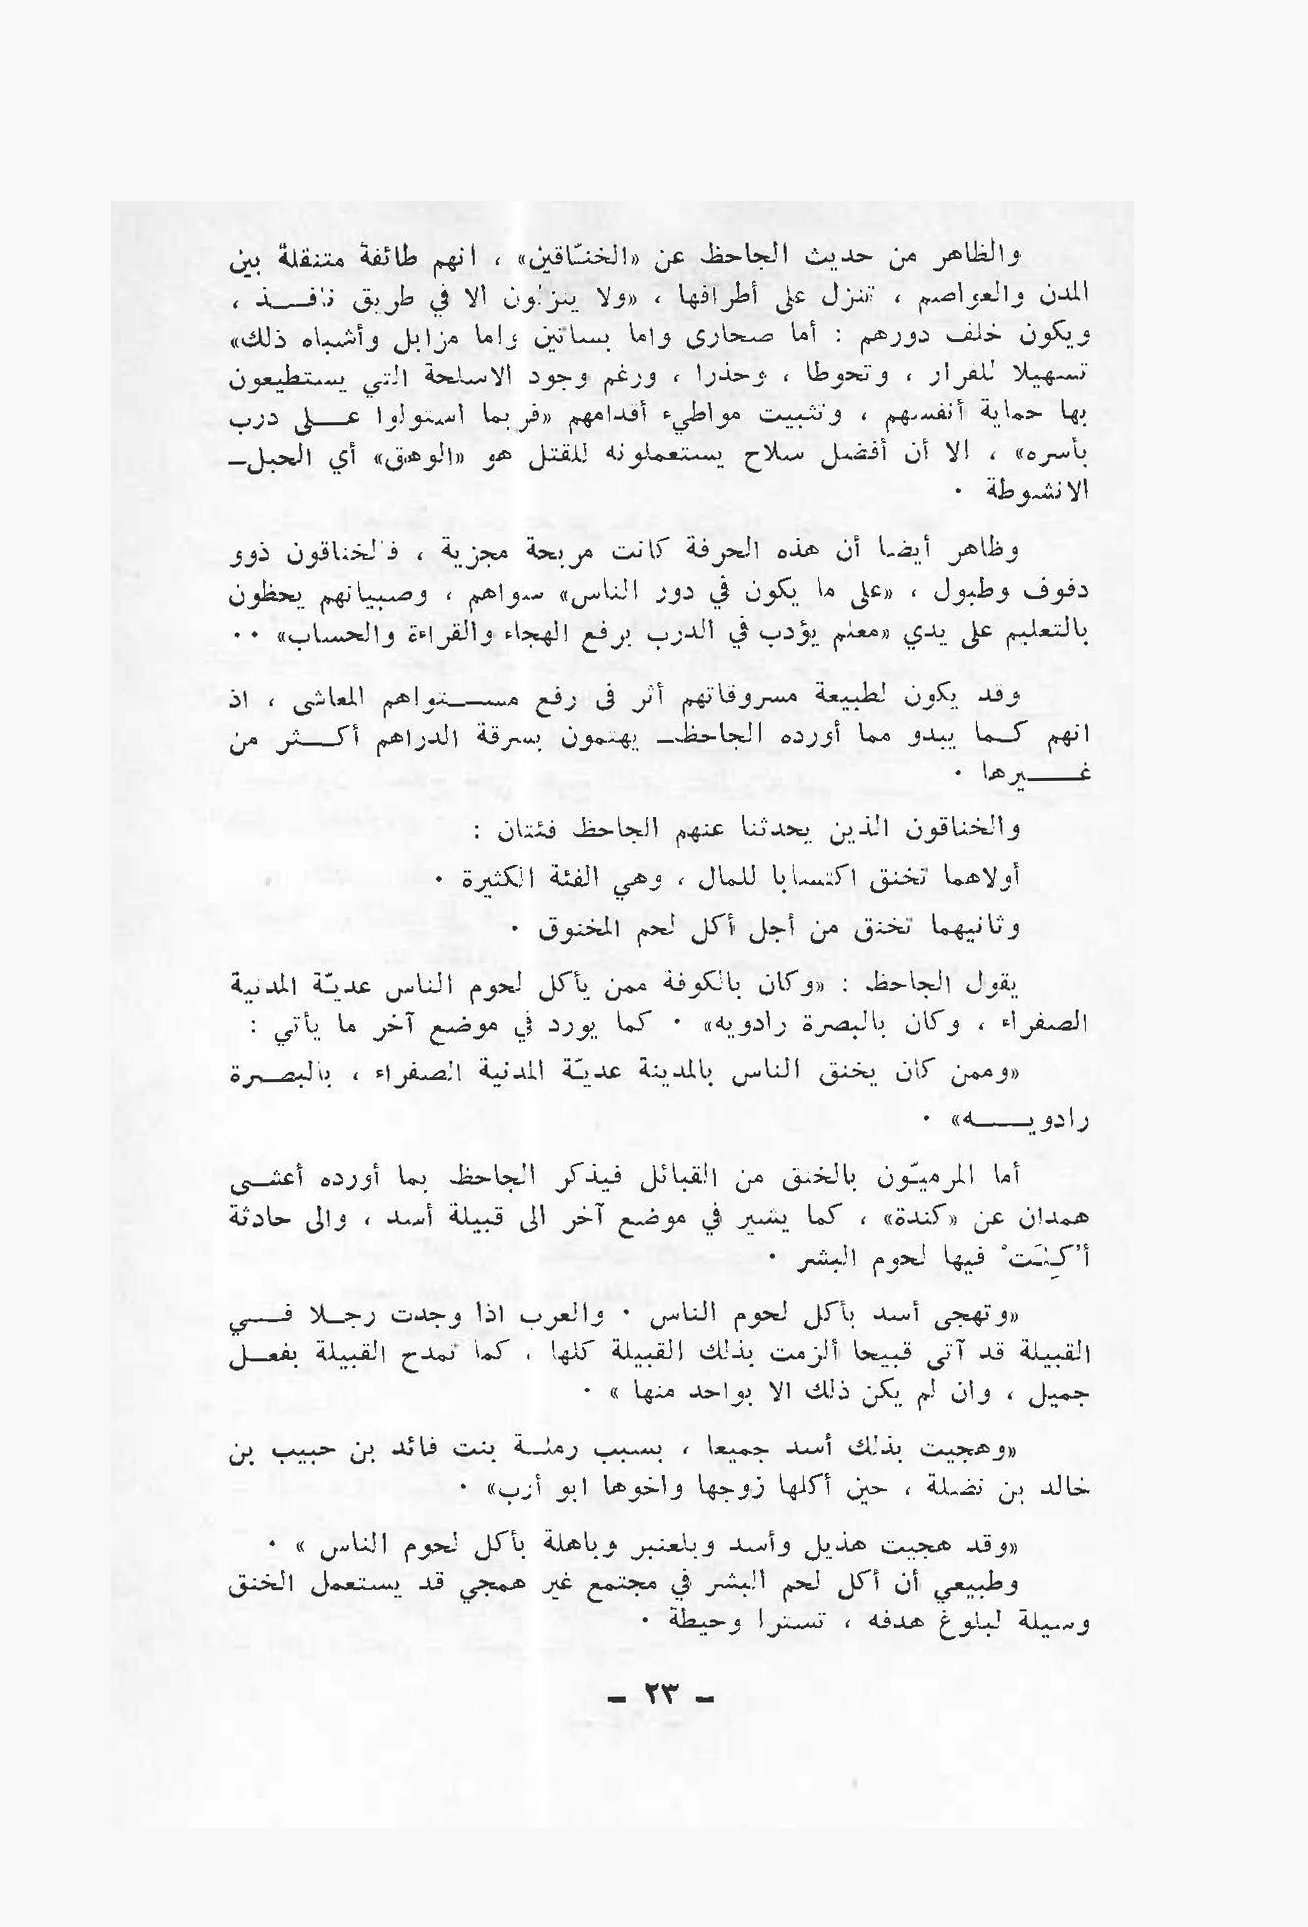 والظاهر من حديث الجاحظ عن «الخنّاقين» ، انهم طائفة متنقلة بين
المدن والعواصم ، تنزل على أطرافها ، «ولا ينزلون الا في طريق نافـــذ ،
ويكون خلف دورهم : أما صحارى واما بساتين واما مزابل وأشباه ذلك»
تسهيلا للفرار ، وتحوطا ، وحذرا ، ورغم وجود الاسلحة التي يستطيعون
بها حماية أنفسهم ، وتثبيت مواطيء أقدامهم «فربما استولوا عـــلى درب
بأسره» ، الا أن أفضل سلاح يستعملونه للقتل هو «الوهق» أي الحبل–
الانشوطة .
وظاهر أيضا أن هذه الحرفة كانت مربحة مجزية ، فالخناقون ذوو
دفوف وطبول ، «على ما يكون في دور الناس» سواهم ، وصبيانهم يحظون
بالتعليم على يدي «معلم يؤدب في الدرب برفع الهجاء والقراءة والحساب» ..
وقد يكون لطبيعة مسروقاتهم أثر فى رفع مســـتواهم المعاشى ، اذ
انهم كـــما يبدو مما أورده الجاحظ– يهتمون بسرقة الدراهم أكـــثر من
غـــــيرها .
والخناقون الذين يحدثنا عنهم الجاحظ فئتان :
أولاهما تخنق اكتسابا للمال ، وهي الفئة الكثيرة .
وثانيهما تخنق من أجل أكل لحم المخنوق .
يقول الجاحظ : «وكان بالكوفة ممن يأكل لحوم الناس عديّة المدنية
الصفراء ، وكان بالبصرة رادويه» . كما يورد في موضع آخر ما يأتي :
«وممن كان يخنق الناس بالمدينة عديّة المدنية الصفراء ، بالبصـــرة
رادويـــــه» .
أما المرميّون بالخنق من القبائل فيذكر الجاحظ بما أورده أعشـــى
همدان عن «كندة» ، كما يشير في موضع آخر الى قبيلة أسد ، والى حادثة
أُكِلَتْ فيها لحوم البشر .
«وتهجى أسد بأكل لحوم الناس . والعرب اذا وجدت رجـــلا فـــي
القبيلة قد آتى قبيحا ألزمت بذلك القبيلة كلها ، كما تمدح القبيلة بفعـــل
جميل ، وان لم يكن ذلك الا بواحد منها » .
«وهجيت بذلك أسد جميعا ، بسبب رملـــة بنت فائد بن حبيب بن
خالد بن نضلة ، حين أكلها زوجها واخوها ابو أرب» .
«وقد هجيت هذيل وأسد وبلعنبر وباهلة بأكل لحوم الناس » .
وطبيعي أن أكل لحم البشر في مجتمع غير همجي قد يستعمل الخنق
وسيلة لبلوغ هدفه ، تسترا وحيطة .
– ٢٣ –